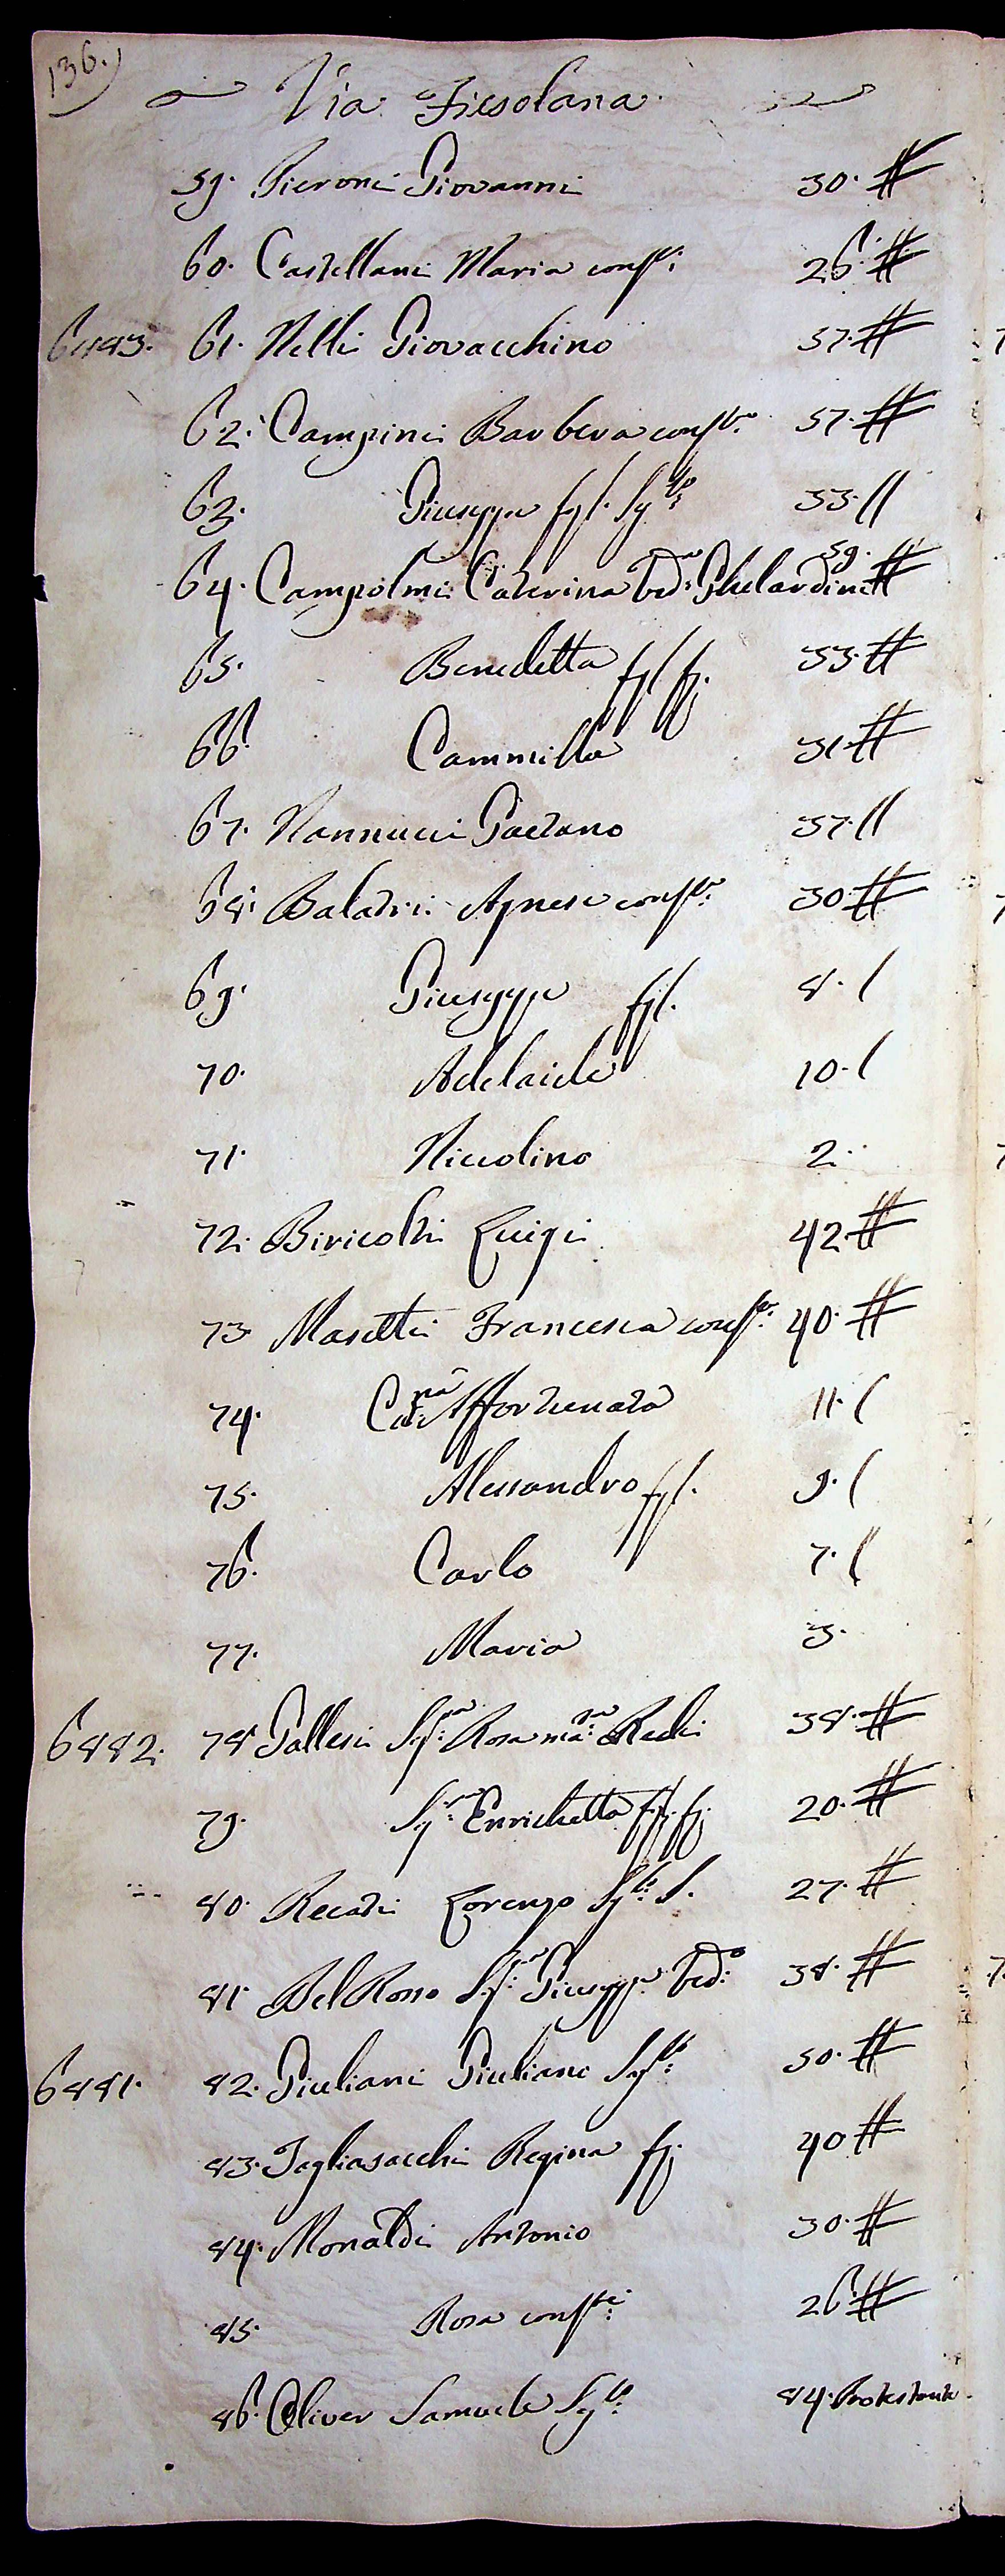 136.)
Via Fiesolana
59. Pieroni Giovanni 30. #
60. Castellani Maria conss:e 26. #
6443. 61. Nelli Giovacchino 37. #
62. Campini Barbera conss:e 57. #
63. Giuseppe fgl. Sg:le 33. //
64. Campolmi Caterina Ved:a Ghelardini 59. #
65. Benedetta fgl. fg. 33. #
66. Cammilla 31. #
67. Nannucci Gaetano 37. //
68. Baladri Agnese conss:e 30. #
69. Giuseppe fgl. 8. /
70. Adelaide 10. /
71. Niccolino 2.
72. Biricolti Luigi 42. #
73. Masetti Francesca conss:e 40. #
74. Ca:na Affortunata 11. /
75. Alessandro fgl. 9. /
76. Carlo 7. /
77. Maria 3.
6882. 78. Gallesi Sig:ra Rosa ma:ta Redi 38. #
79. Sig:ra Enrichetta fgl. fg. 20. #
80. Recati Lorenzo Sg:le S. 27. #
81. Del Rosso Sig:r Giuseppe Ved:o 38. #
6881. 82. Giuliani Giuliano Sg:le 50. #
83. Tagliasacchi Regina fg. 40 #
84. Monaldi Antonio 30. #
85. Rosa conss:e 26. #
86. Oliver Samuele Sg:le 84. Protestante.